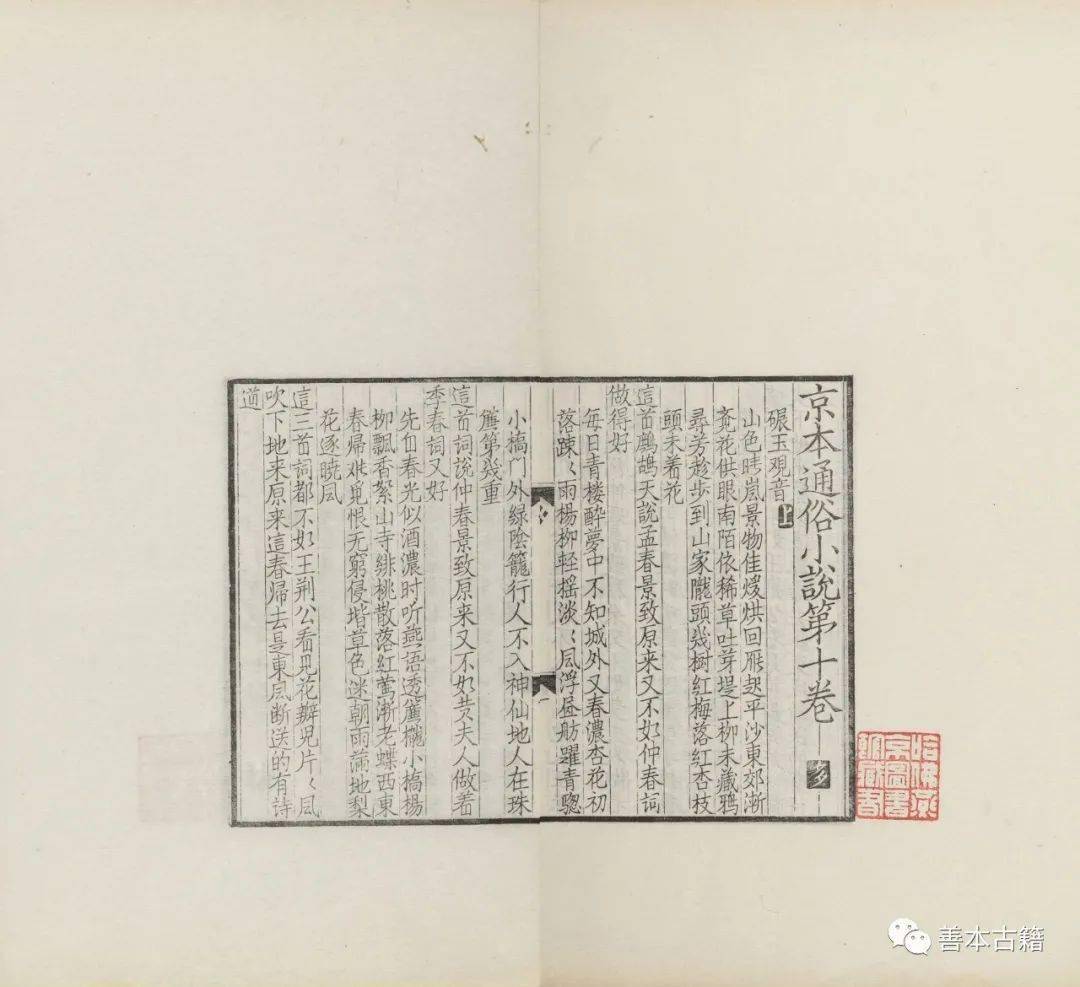 京本通俗小說第十卷
碾玉观音上
山色晴嵐景物佳煖烘回雁起平沙東郊漸
覺花供眼南陌依稀草吐芽堤上柳未藏鴉
尋芳趁步到山家隴頭幾树紅梅落紅杏枝
頭未着花
這首鷓鴣天說孟春景致原来又不如仲春词
做得好
每日青楼醉夢中不知城外又春濃杏花初
落踈〻雨楊柳轻搖淡〻風浮畫舫躍青驄
小橋門外綠陰籠行人不入神仙地人在珠
簾第幾重
這首词說仲春景致原来又不如黄夫人做着
季春词又好
先自春光似酒濃时听燕语透簾櫳小橋楊
柳飄香絮山寺緋桃散落红鶯渐老蝶西東
春帰难覓恨无窮侵堦草色迷朝雨滿地梨
花逐曉風
這三首词都不如王荆公看見花瓣児片〻風
吹下地来原来這春帰去是東風断送的有诗
道
哈佛燕
京圖書
館藏書
善本古籍